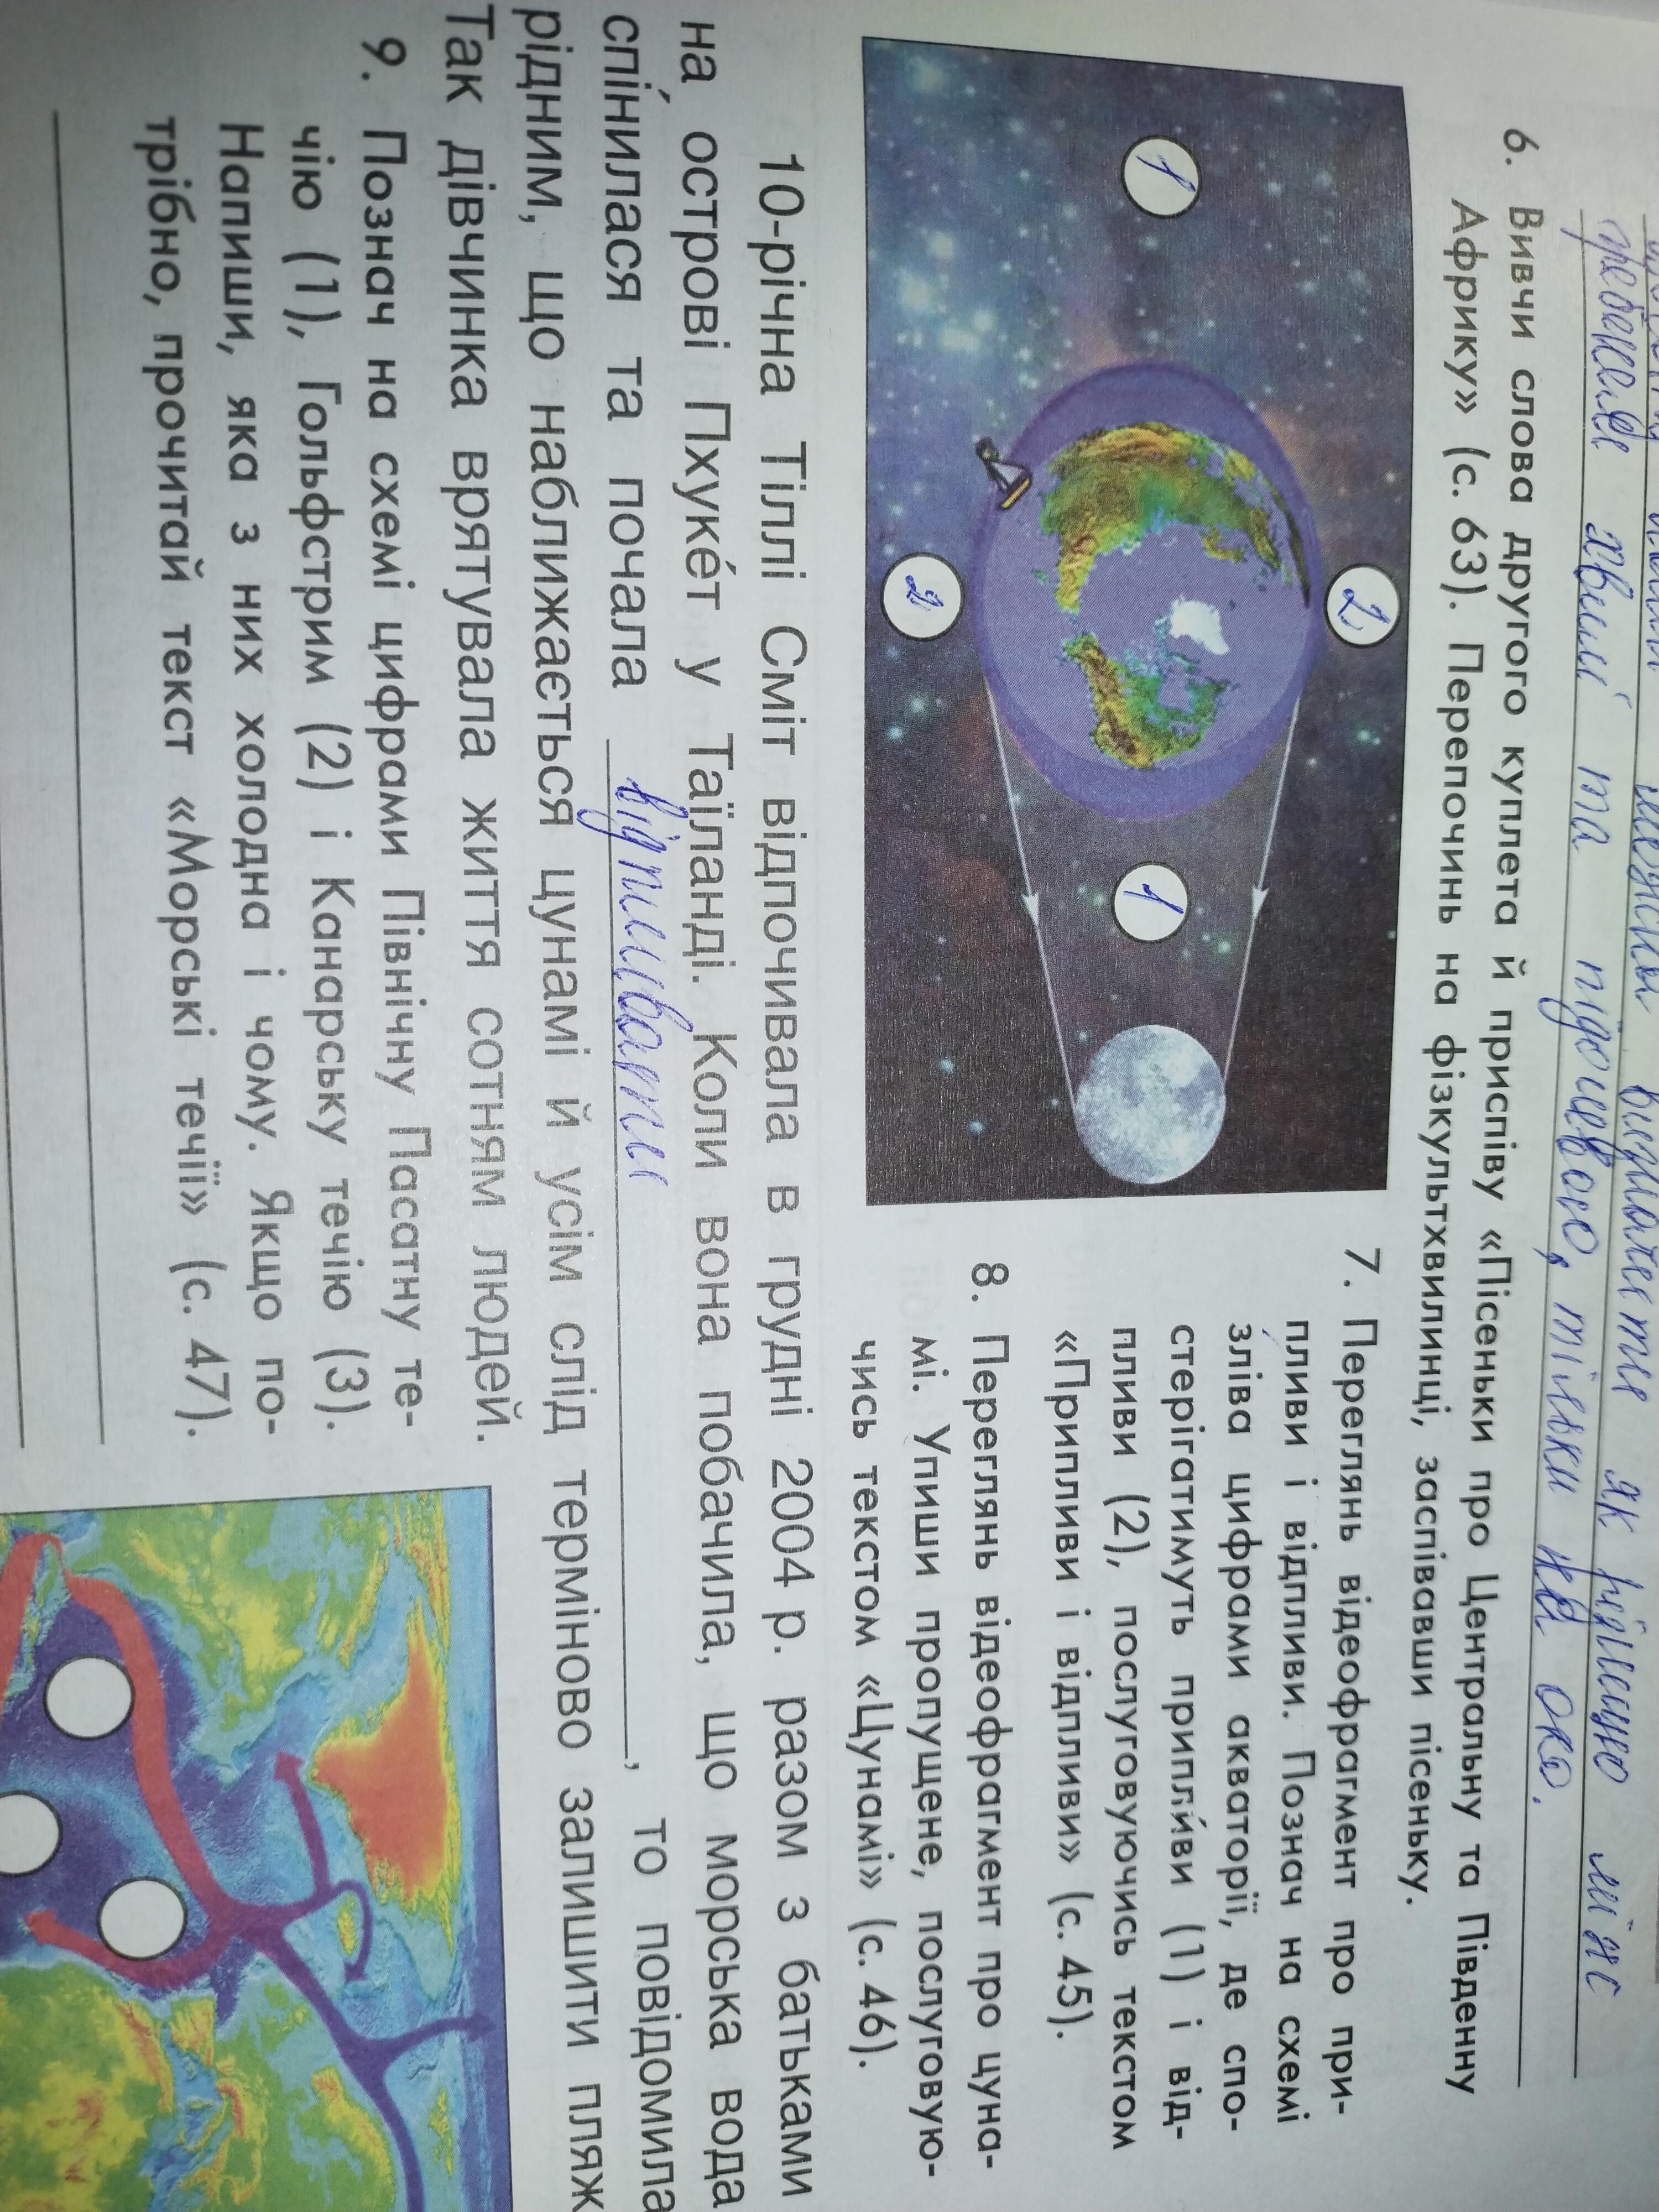 гребенем хвилі та підошвою, тільки на око.
6. Вивчи слова другого куплета й приспіву «Пісеньки про Центральну та Південну
Африку» (с. 63). Перепочинь на фізкультхвилинці, заспівавши пісеньку.
1
2
2
1
7. Переглянь відеофрагмент про при-
пливи і відпливи. Познач на схемі
зліва цифрами акваторії, де спо-
стерігатимуть припли́ви (1) і від-
пливи (2), послуговуючись текстом
«Припливи і відпливи» (с. 45).
8. Переглянь відеофрагмент про цуна-
мі. Упиши пропущене, послуговую-
чись текстом «Цунамі» (с. 46).
10-річна Тіллі Сміт відпочивала в грудні 2004 р. разом з батьками
на острові Пхуке́т у Таїланді. Коли вона побачила, що морська вода
спі́нилася та почала відпливати, то повідомила
рідним, що наближається цунамі й усім слід терміново залишити пляж
Так дівчинка врятувала життя сотням людей.
9. Познач на схемі цифрами Північну Пасатну те-
чію (1), Гольфстрим (2) і Канарську течію (3).
Напиши, яка з них холодна і чому. Якщо по-
трібно, прочитай текст «Морські течії» (с. 47).